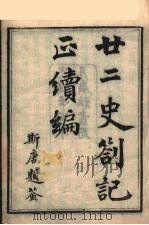 廿二史劄記
正續編
斯唐題签